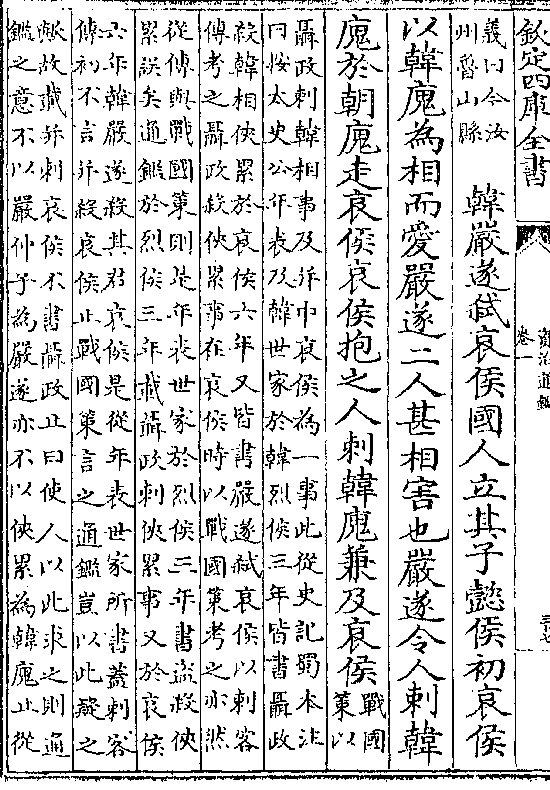 欽定四庫全書
資治通鑑
卷一
義曰今汝
州魯山縣
韓嚴遂弑哀侯國人立其子懿侯初哀侯
以韓廆為相而愛嚴遂二人甚相害也嚴遂令人刺韓
廆於朝廆走哀侯哀侯抱之人刺韓廆兼及哀侯
戰國
策以
聶政刺韓相事及并中哀侯為一事此從史記蜀本註
曰按太史公年表及韓世家於韓烈侯三年皆書聶政
殺韓相俠累於哀侯六年又皆書嚴遂弑哀侯以刺客
傳考之聶政殺俠累事在哀侯時以戰國策考之亦然
從傳與戰國策則是年表世家於烈侯三年書盜殺俠
累誤矣通鑑於烈侯三年載聶政刺俠累事又於哀侯
六年韓嚴遂殺其君哀侯是從年表世家所書蓋刺客
傳初不言并殺哀侯止戰國策言之通鑑豈以此疑之
歟故載并刺哀侯不書聶政止曰使人以此求之則通
鑑之意不以嚴仲子為嚴遂亦不以俠累為韓廆止從